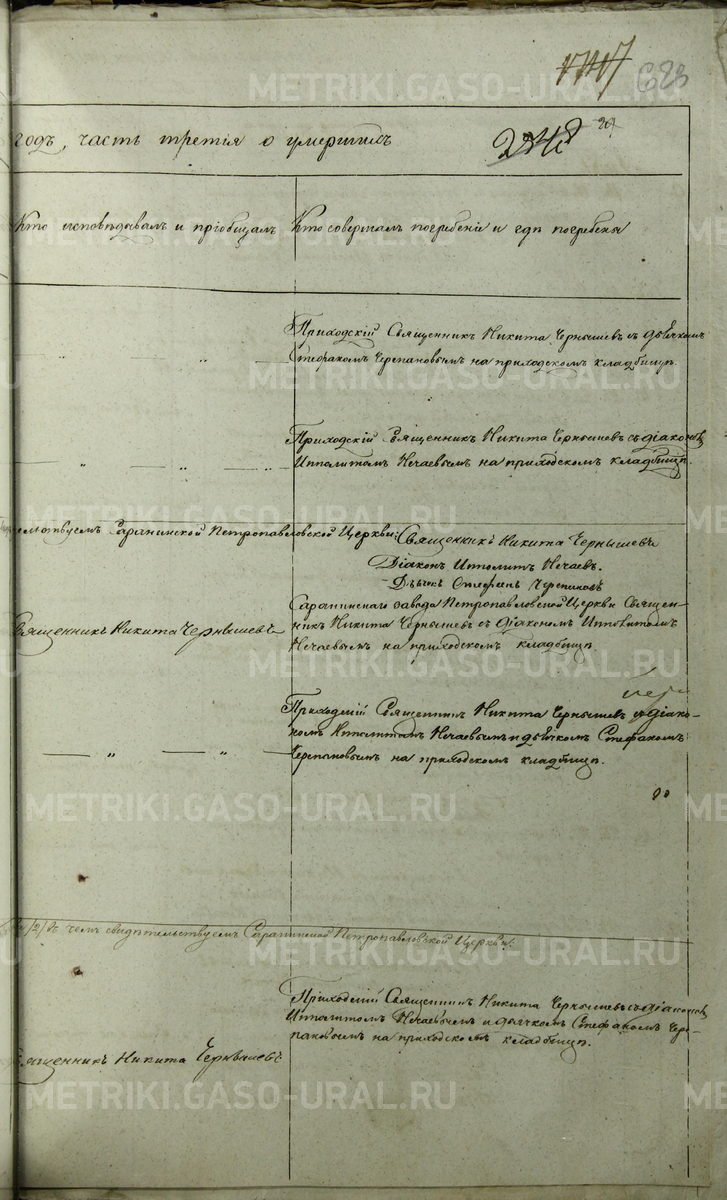 623
годъ, часть третія о умершихъ
Кто исповѣдавалъ и пріобщалъ
Кто совершалъ погребеніе и гдѣ погребены
Приходскій Священникъ Никита Чернышевъ съ дьячкомъ
Стефаномъ Черепановымъ на приходскомъ кладбищѣ.
Приходскій Священникъ Никита Чернышевъ съ діакономъ
Ипполитомъ Нечаевымъ на приходскомъ кладбищѣ.
Саранинской Петропавловской Церкви: Священникъ Никита Чернышевъ
Діаконъ Ипполитъ Нечаевъ.
Дьячекъ Стефанъ Черепановъ
Священникъ Никита Чернышевъ
Саранинскаго завода Петропавловской Церкви Священ-
никъ Никита Чернышевъ съ діакономъ Ипполитомъ
Нечаевымъ на приходскомъ кладбищѣ
Приходскій Священникъ Никита Чернышевъ съ діако-
номъ Ипполитомъ Нечаевымъ и дьячкомъ Стефаномъ
Черепановымъ на приходскомъ кладбищѣ.
въ чемъ свидѣтельствуемъ Саранинской Петропавловской Церкви:
Приходскій Священникъ Никита Чернышевъ съ діакономъ
Ипполитомъ Нечаевымъ и дьячкомъ Стефаномъ Чере-
пановымъ на приходскомъ кладбищѣ.
Священникъ Никита Чернышевъ
METRIKI.GASO-URAL.RU